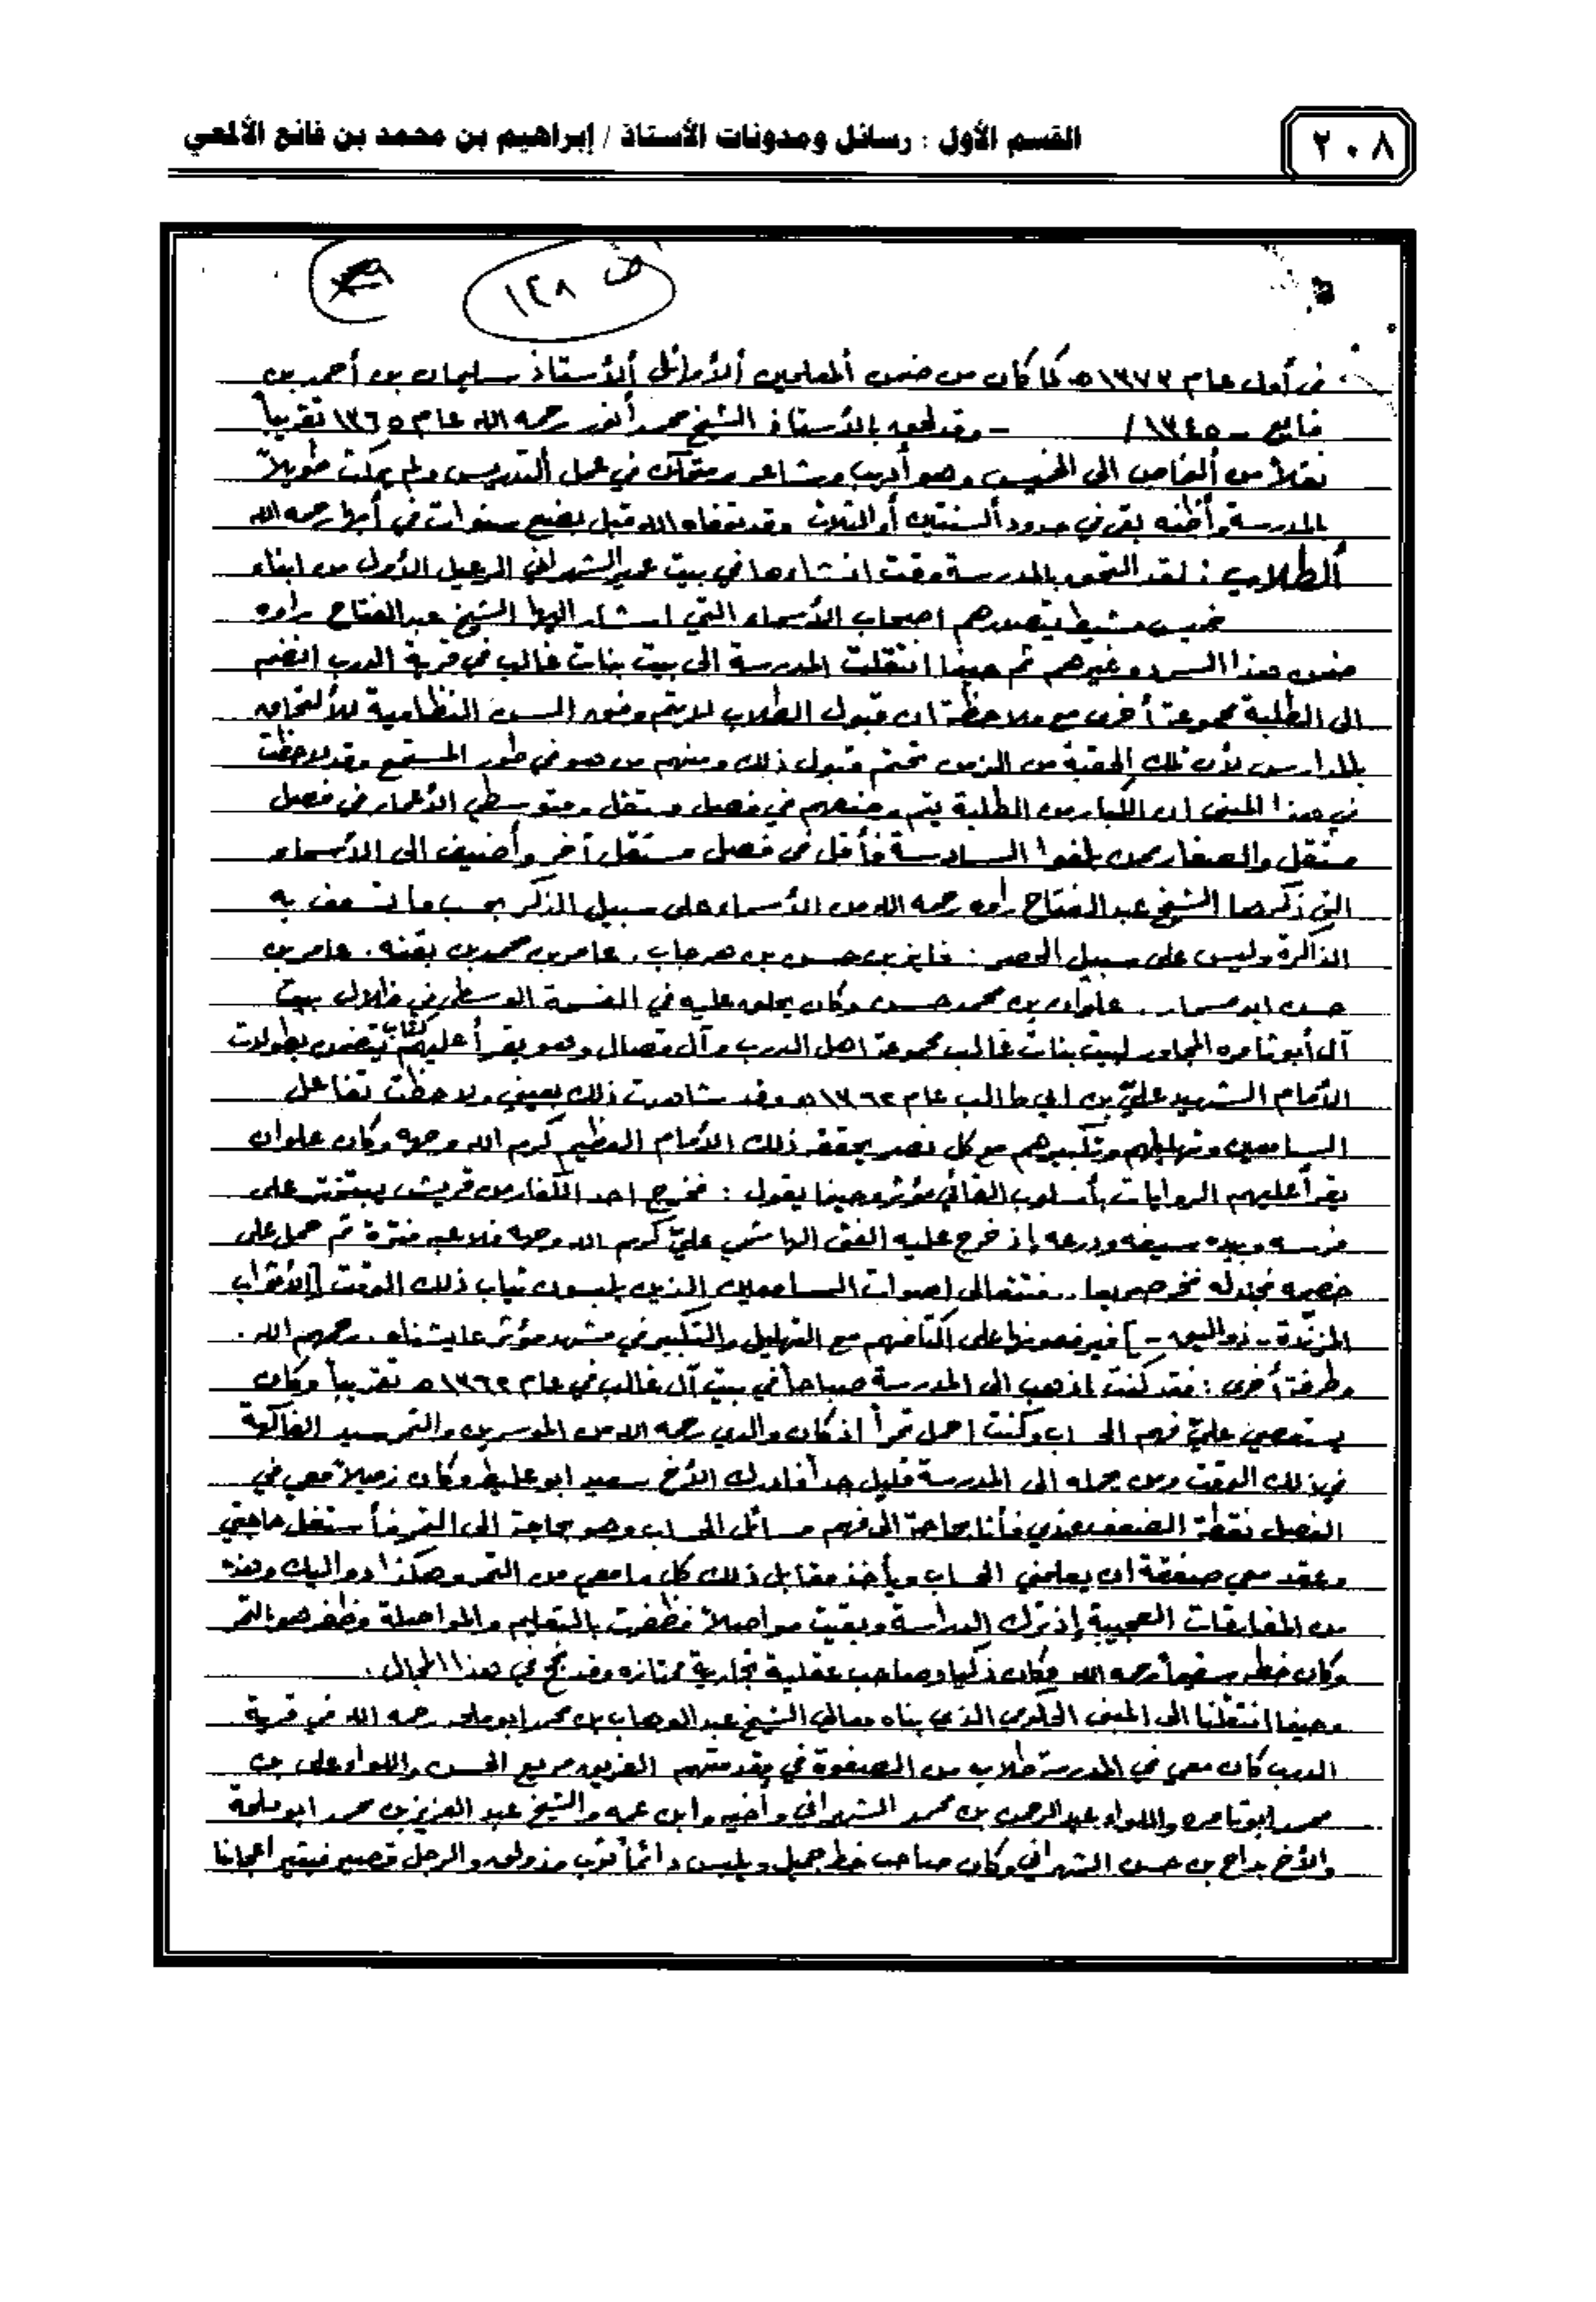 ٢٠٨
القسم الأول : رسائل ومدونات الأستاذ / إبراهيم بن محمد بن فائع الألمعي
ص ١٢٨
في أول عام ١٣٧٣هـ كما كان من ضمن المعلمين الأوائل الأستاذ سليمان بن أحمد بن
فائع - ١٣٤٥ / - وقد لحقه بالأستاذ الشيخ محمد أنور رحمه الله عام ١٣٦٥ تقريباً
نقلاً من الخاص الى الخميس وهو أديب وشاعر ومتمكن في عمل التدريس ولم يمكث طويلاً
بالمدرسة وأظنه بقي في حدود السنتين أو الثلاث وقد توفاه الله قبل بضع سنوات في أبها رحمه الله
الطلاب : لقد التحق بالمدرسة وقت انشاءها في بيت عمير الشهراني الرعيل الأول من ابناء
خميس مشيط يتصدرهم اصحاب الأسماء التي اشار اليها الشيخ عبدالفتاح راوه
ضمن هذا السرد وغيرهم ثم حينما انتقلت المدرسة الى بيت بنات غالب في قرية الدرب انضم
الى الطلبة مجموعة أخرى مع ملاحظة ان قبول الطلاب لا يتم وفق السن النظامية للألتحاق
بالمدارس لأن تلك الحقبة من الزمن تحتم قبول ذلك ومنهم من هو في طور المستمع وقد لاحظت
في هذا المبنى ان الكبار من الطلبة يتم وضعهم في فصل مستقل ومتوسطي الأعمار في فصل
مستقل والصغار ممن بلغوا السادسة فأقل في فصل مستقل آخر وأضيف الى الأسماء
التي ذكرها الشيخ عبدالفتاح راوه رحمه الله من الأسماء على سبيل الذكر بحسب ما تسعف به
الذاكرة وليس على سبيل الحصر : فايز بن حسن بن هرجاب . عامر بن محمد بن بقنه . عامر بن
حسن ابو مسمار . علوان بن محمد حسن وكان يحلق عليه في الفسحة الوسطى في ظلال بيت
آل أبو تامره المجاور لبيت بنات غالب مجموعة اهل الدرب وآل قصال وهو يقرأ عليهم كتاب يتضمن بطولات
الأمام الشهيد علي بن ابي طالب عام ١٣٦٢هـ وقد شاهدت ذلك بعيني ولاحظت تفاعل
السامعين وتهليلهم وتكبيرهم مع كل نصر يحققه ذلك الأمام العظيم كرم الله وجهه وكان علوان
يقرأ عليهم الروايات بأسلوب القائي مؤثر وحينما يقول : فخرج احد الكفار من قريش يتبختر على
فرسه وبيده سيفه ودرعه إذ خرج عليه الفتى الهاشمي علي كرم الله وجهه فلاعبه فترة ثم حمل على
خصمه فجندله فخر صريعا .. فتتعالى اصوات السامعين الذين يلبسون ثياب ذلك الوقت [الأثواب
المزندة - ذواليه - ] فيرفعونها على اكتافهم مع التهليل والتكبير في مشهد مؤثر عايشناه . رحمهم الله .
وطرفة أخرى : فقد كنت اذهب الى المدرسة صباحاً في بيت آل غالب في عام ١٣٦٢هـ تقريباً وكان
يستعصي عليّ فهم الحساب وكنت احمل تمراً اذ كان والدي رحمه الله من الموسرين والتمر سيد الفاكهة
في ذلك الوقت ومن يحمله الى المدرسة قليل جداً فادرك الأخ سعيد ابو عليط وكان زميلاً معي في
الفصل نقطة الضعف عندي فأنا بحاجة الى فهم مسائل الحساب وهو بحاجة الى التمر فأستغل حاجتي
وعقد معي صفقة ان يعلمني الحساب ويأخذ مقابل ذلك كل ما معي من التمر وهكذا دواليك وهذه
من المفارقات العجيبة إذ ترك الدراسة وبقيت مواصلاً فظفرت بالتعليم والمواصلة وظفر هو بالتمر
وكان خطه سقيماً رحمه الله وكان ذكيا وصاحب عقلية تجارية ممتازة وقد نجح في هذا المجال .
وحينما انتقلنا الى المبنى الحكومي الذي بناه معالي الشيخ عبدالوهاب بن محمد ابو ملحه رحمه الله في قرية
الدرب كان معي في المدرسة طلاب من الصفوة في مقدمتهم الفريق مريع الحسن واللواء علي بن
محمد ابو تامره واللواء عبدالرحمن بن محمد الشهراني وأخيه وابن عمه والشيخ عبد العزيز بن محمد ابو ملحة
والأخ بداح بن حسن الشهراني وكان صاحب خط جميل ويلبس دائماً ثوب مذولق والرجل قصير فيثير اعجابنا